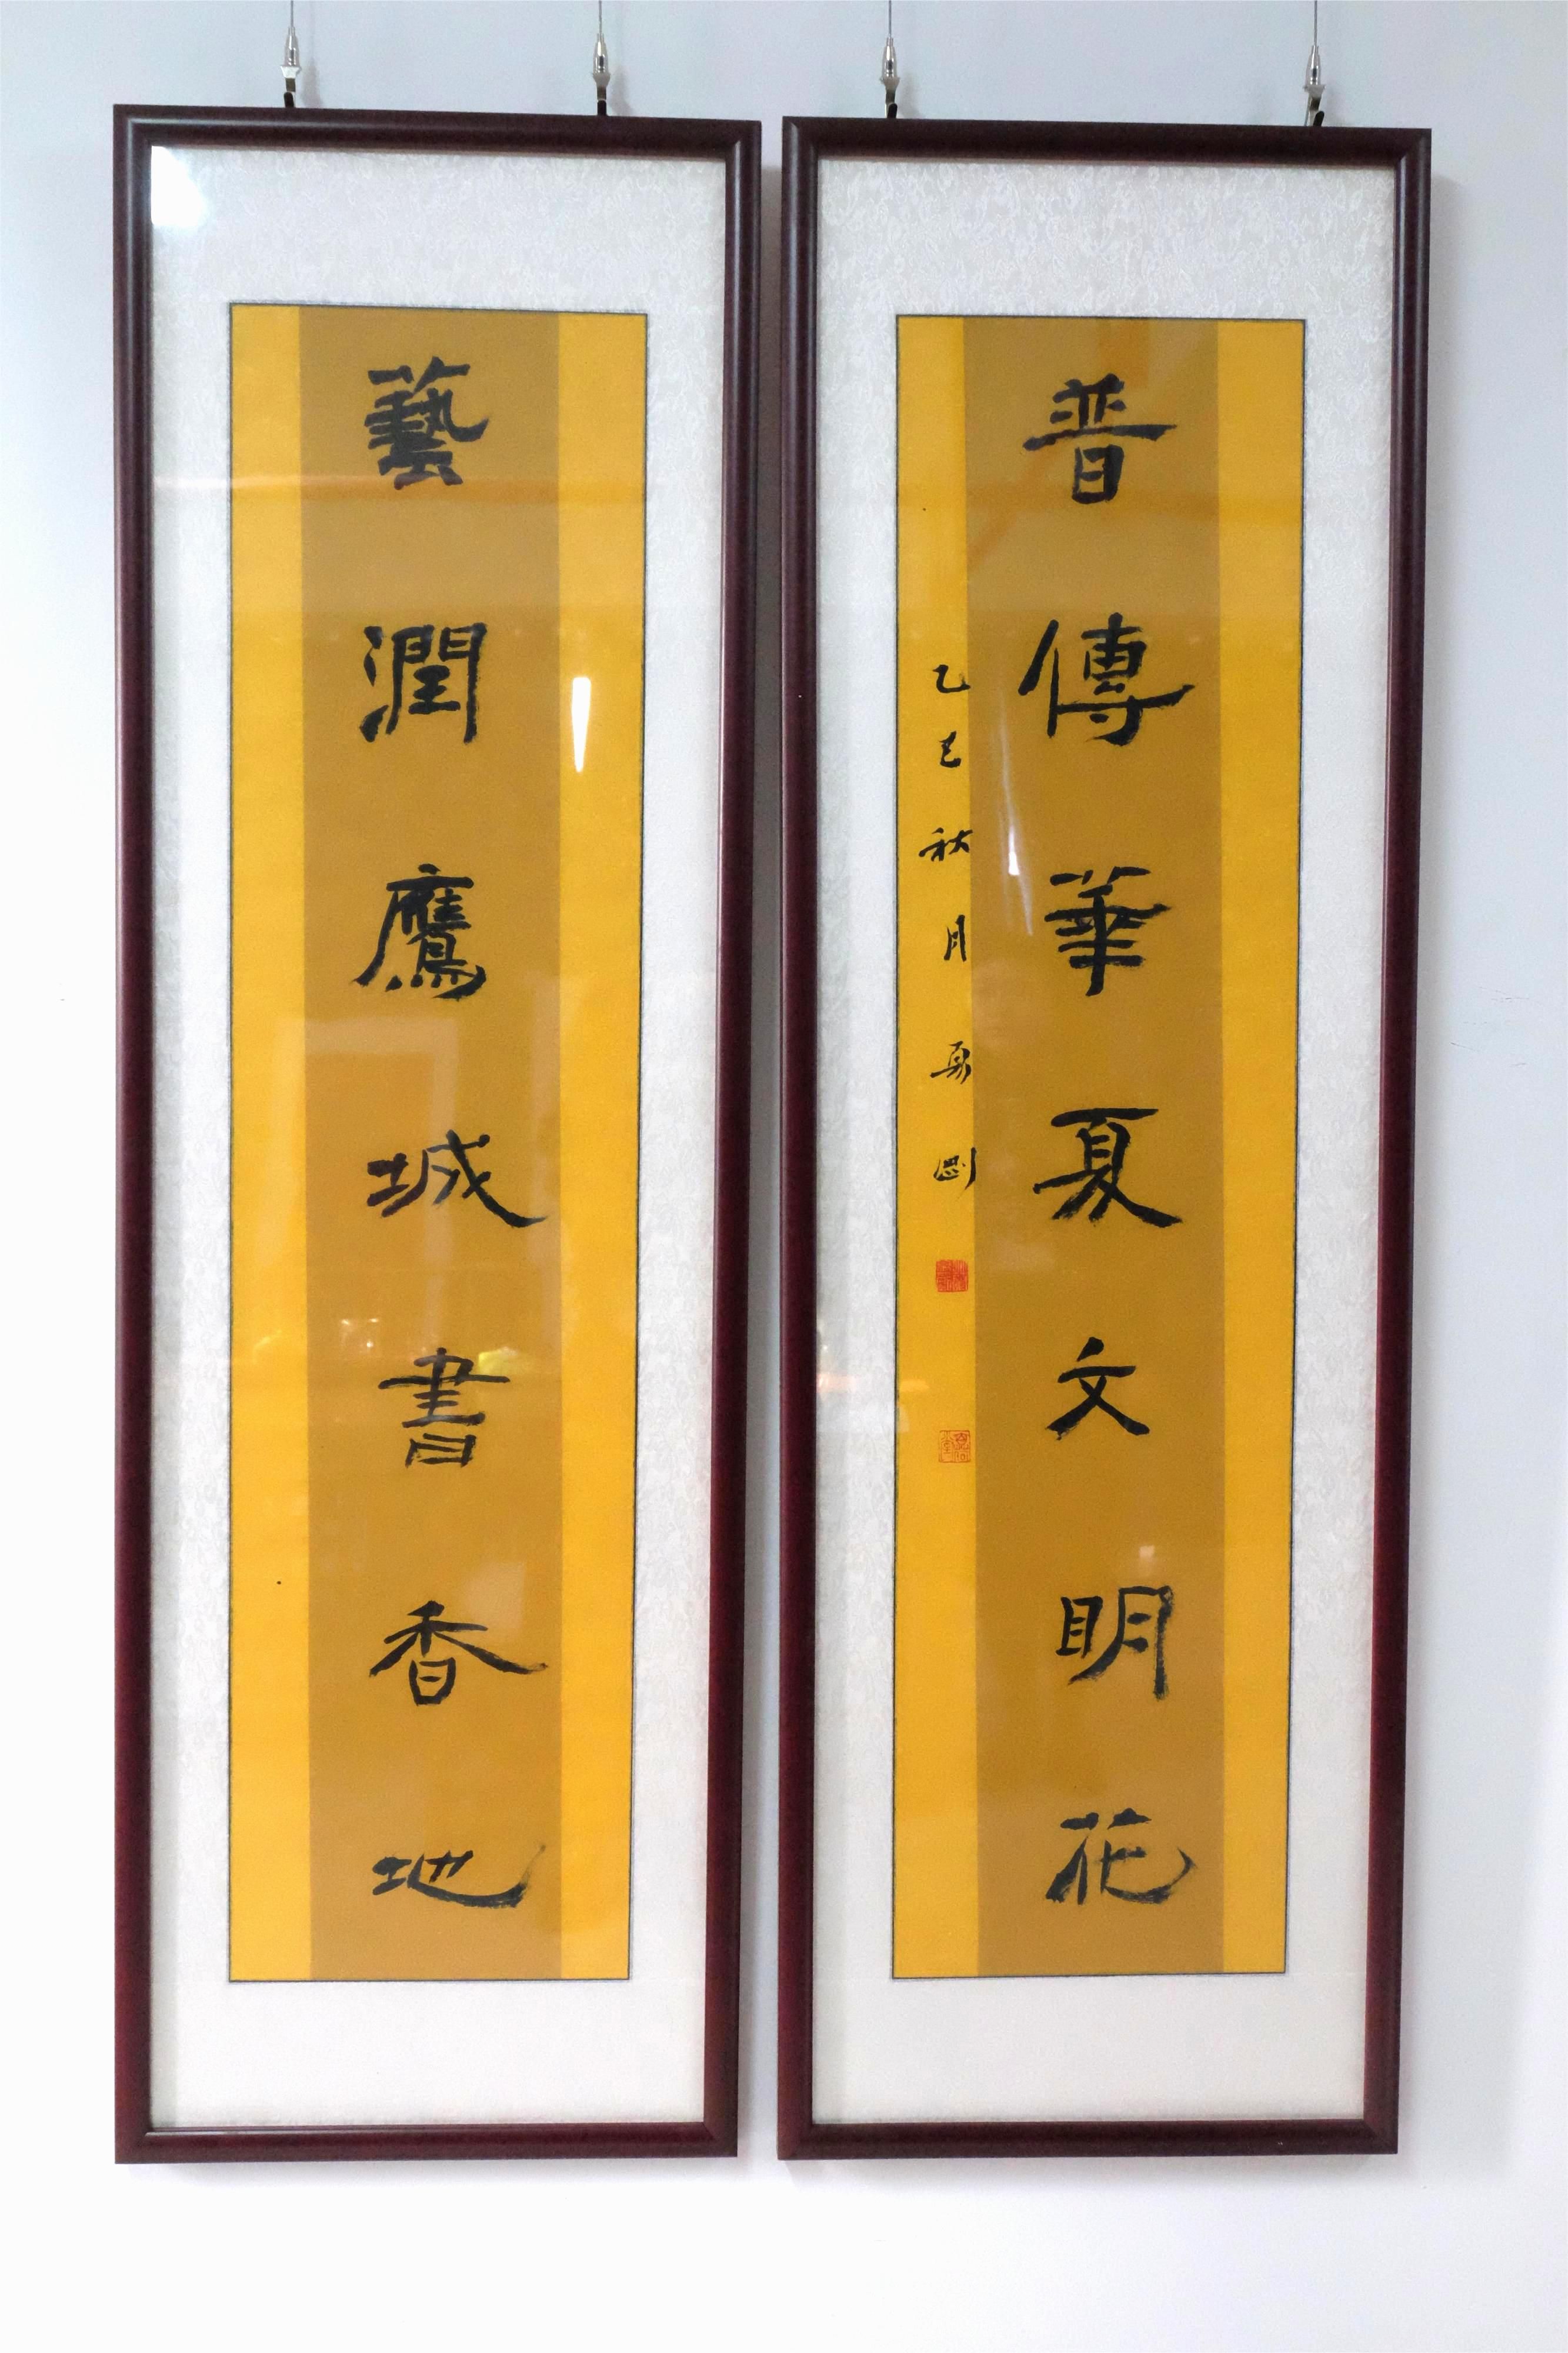 藝潤鷹城書香地
普傳華夏文明花
乙巳秋月剛